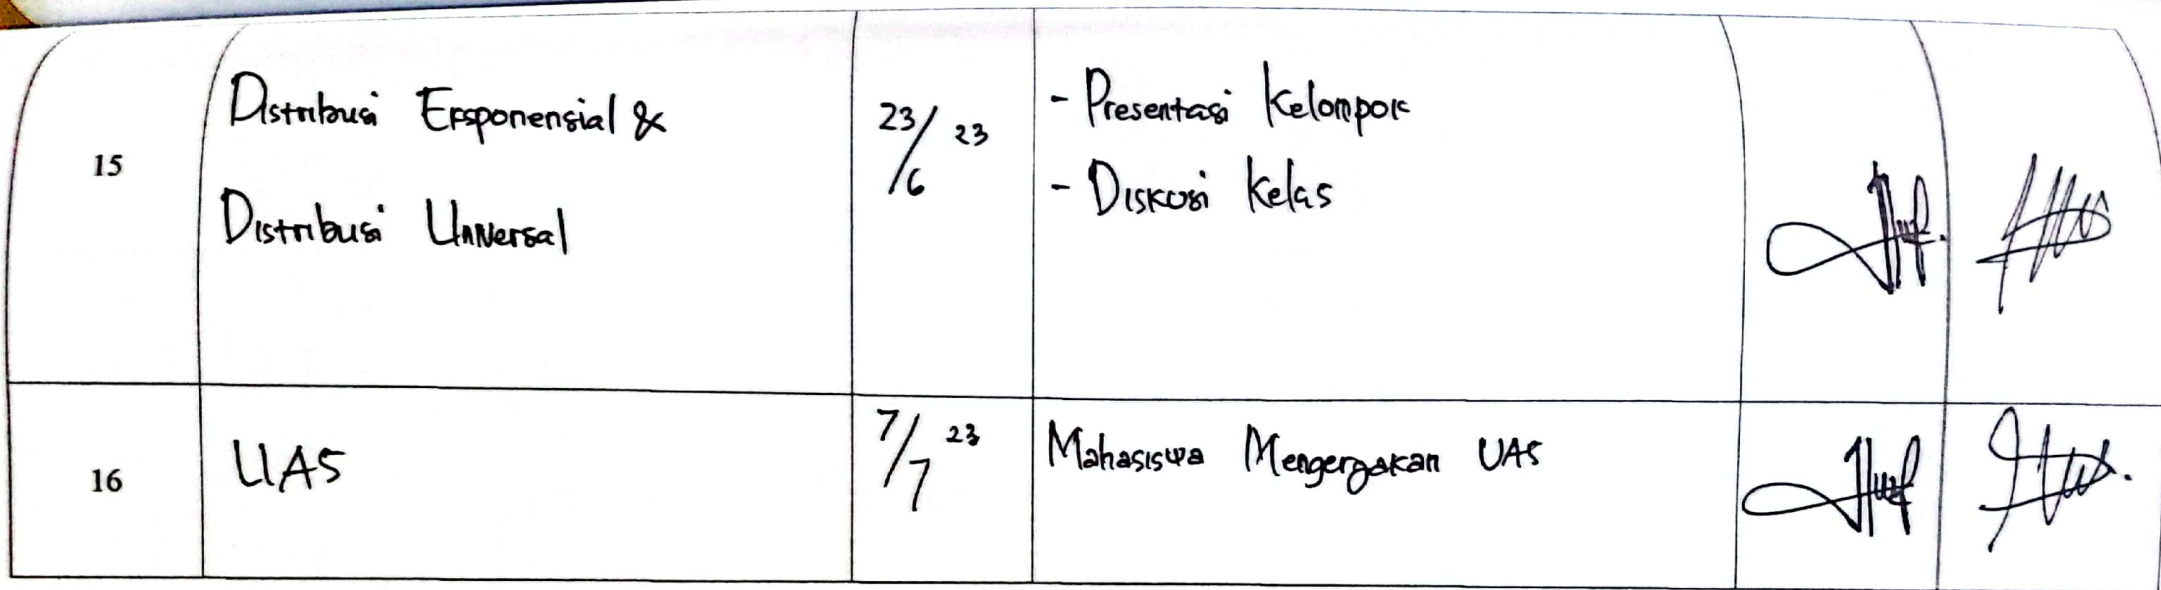 15
Distribusi Eksponensial &
Distribusi Universal
23/6 23
- Presentasi Kelompok
- Diskusi Kelas
16
UAS
7/7 23
Mahasiswa Mengerjakan UAS